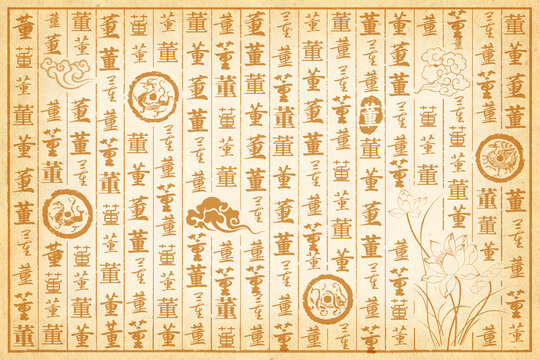 董董董董董董董董董董
董董董董董董董董董
董董董董董董董董
董董董董董董董
董董董董董董董董
董董董董董董董董董董董
董董董董董董董董董董
董董董董董董董董董董
董董董董董董董董董董董董
董董董董董董董董董董董董
董董董董董董董董董董
董董董董董董董董董董
董董董董董董董董董董
董董董董董董董董董董
董董董董董董董董董董董
董董董董董董董董董
董董董董董董董董董
董董董董董董董董董董董